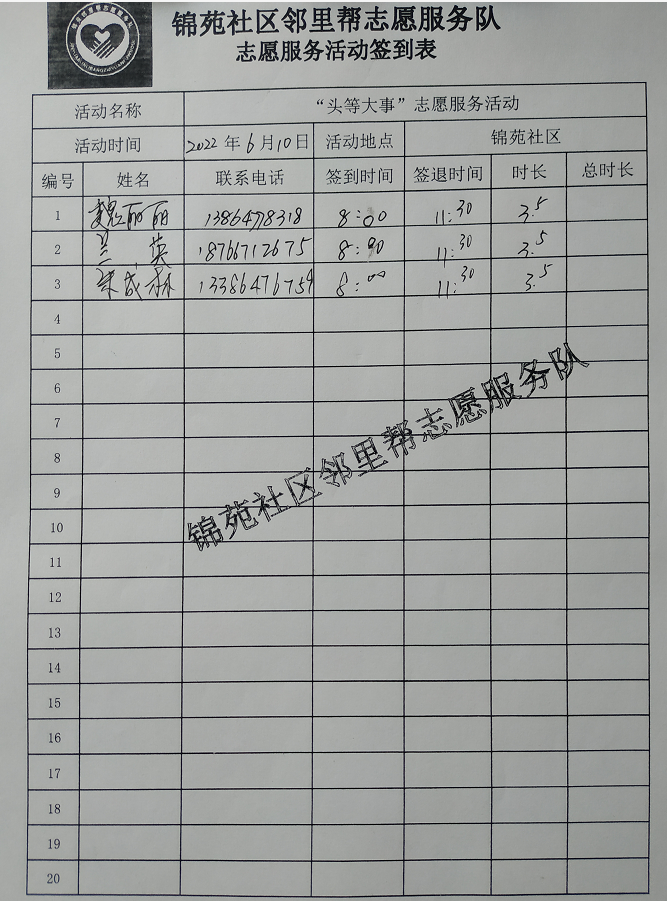 锦苑社区邻里帮志愿服务队
志愿服务活动签到表
活动名称 “头等大事”志愿服务活动
活动时间 2022年6月10日 活动地点 锦苑社区
编号 姓名 联系电话 签到时间 签退时间 时长 总时长
1 魏丽丽 13864778318 8:00 11:30 3.5
2 兰英 18766712675 8:00 11:30 3.5
3 成林 13386476759 8:00 11:30 3.5
4
5
6
7
8
9
10
11
12
13
14
15
16
17
18
19
20
锦苑社区邻里帮志愿服务队